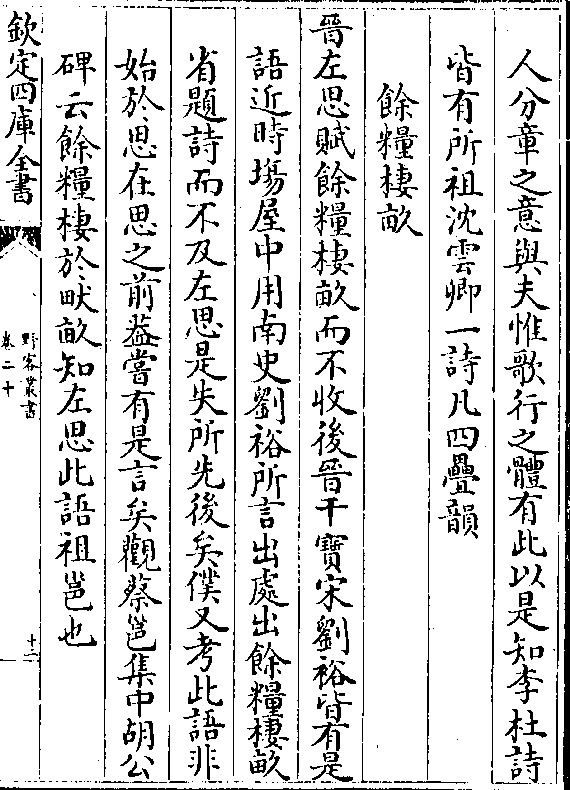 人分章之意與夫惟歌行之體有此以是知李杜詩
皆有所祖沈雲卿一詩凡四疊韻
餘糧棲畝
晉左思賦餘糧棲畝而不收後晉干寶宋劉裕皆有是
語近時塲屋中用南史劉裕所言出處出餘糧棲畝
省題詩而不及左思是失所先後矣僕又考此語非
始於思在思之前葢嘗有是言矣觀蔡邕集中胡公
碑云餘糧棲於畎畝知左思此語祖邕也
欽定四庫全書
野客叢書
卷二十
十二